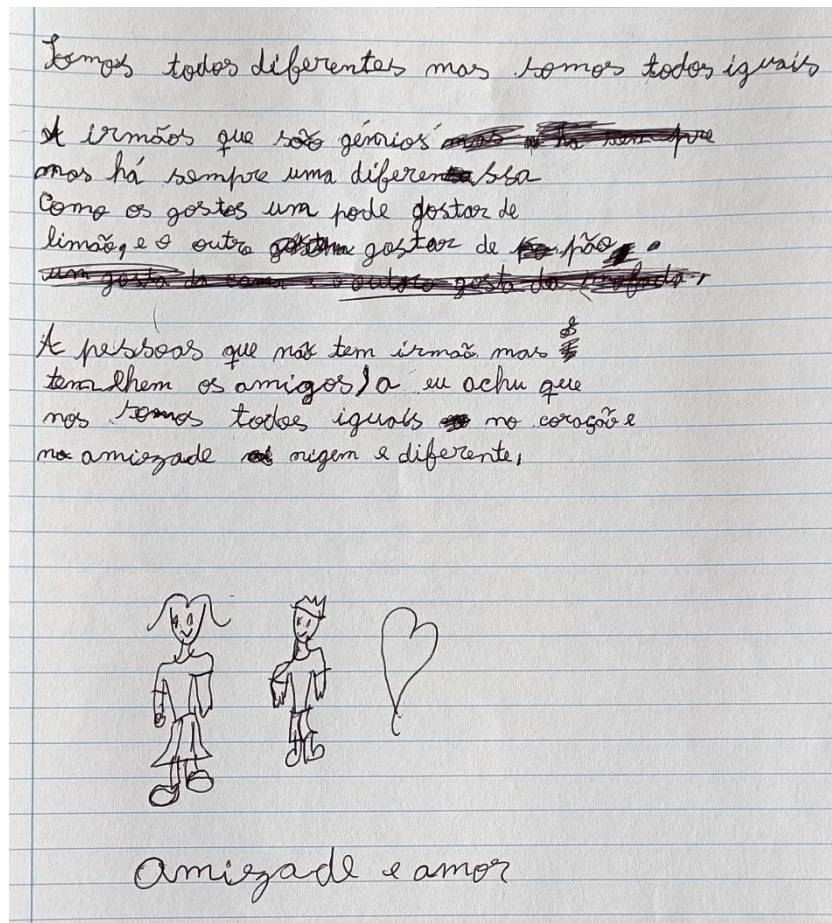 Somos todos diferentes mas somos todos iguais
A irmãos que são génrios
mas há sempre uma diferenssa
Como os gostos um pode gostar de
limão, e o outro gostar de pão.
A pessoas que não tem irmão mas
tem lhem os amigos/a eu achu que
nos somos todos iguais no coração e
na amiezade nigem e diferente,
amiezade e amor